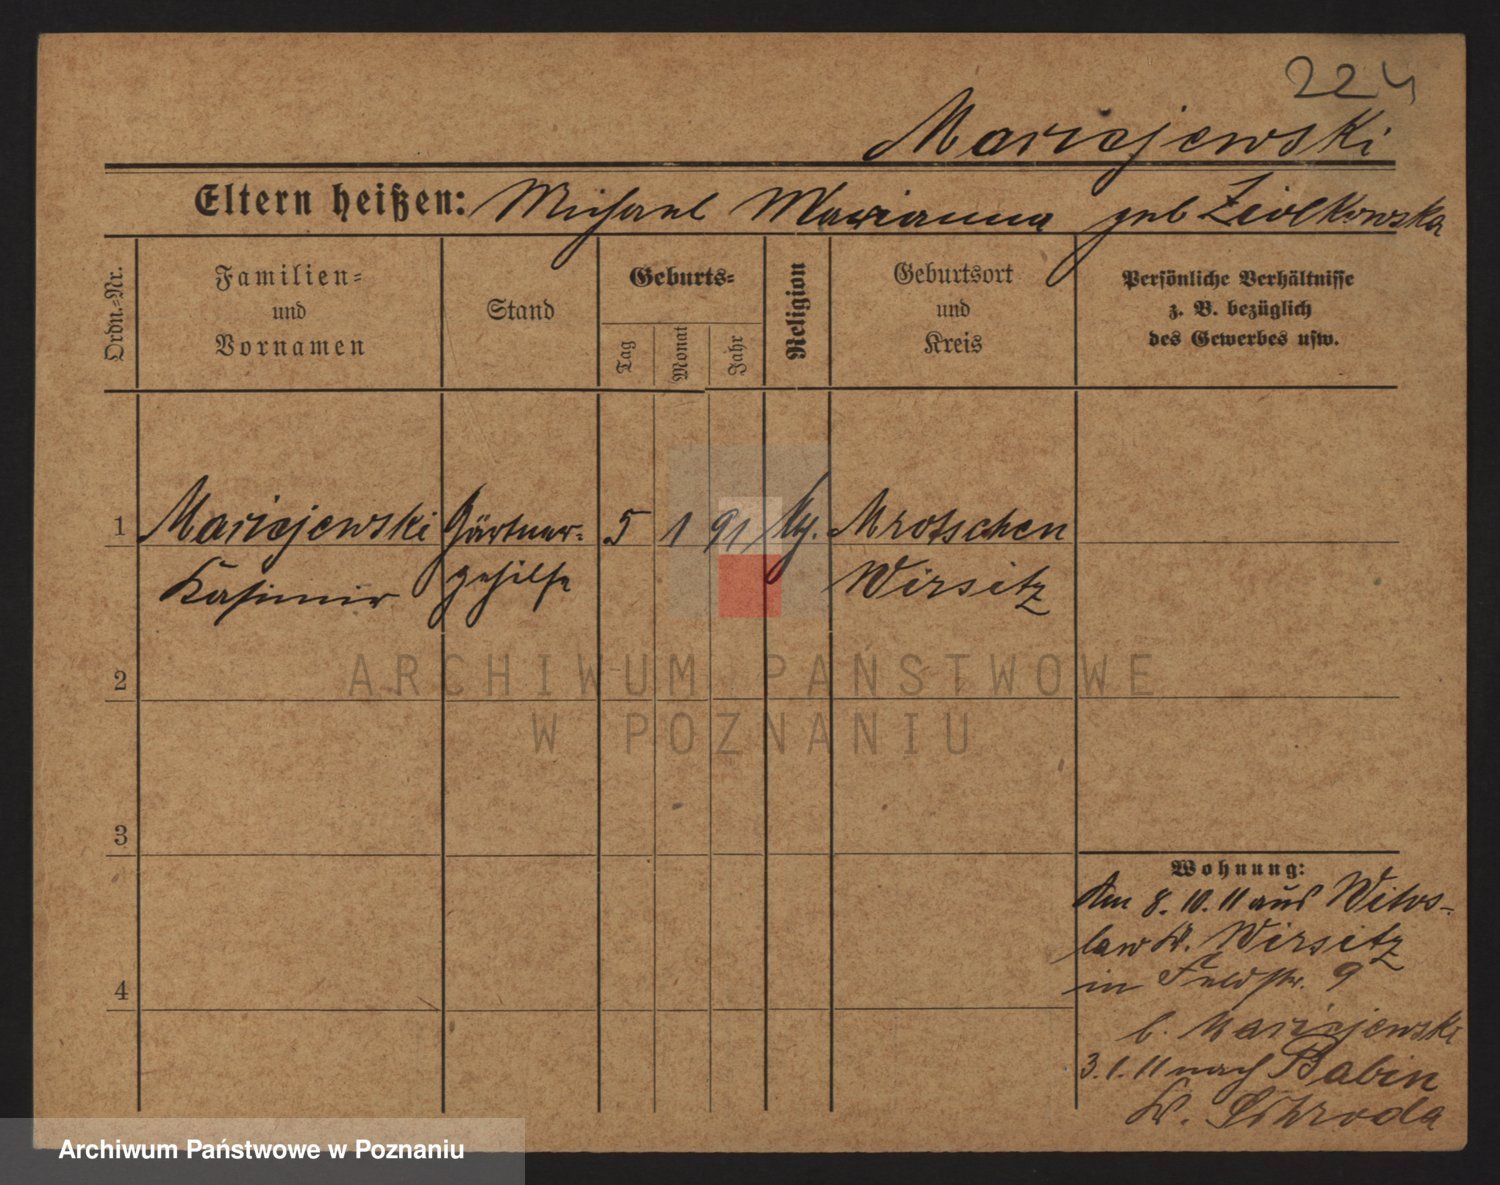 224
Maricajewski
Eltern heißen: Michael Marianna geb Ziolkowska
Ordn.-Nr.
Familien-
und
Vornamen
Stand
Geburts-
Tag
Monat
Jahr
Religion
Geburtsort
und
Kreis
Persönliche Verhältnisse
z. B. bezüglich
des Gewerbes usw.
1
Kasimir
Gärtner-
gehilfe
5
1
91
Mrotschen
Wirsitz
2
ARCHIWUM PAŃSTWOWE
W POZNANIU
3
4
Wohnung:
Am 8. 10. 11 aus Witos-
law K. Wirsitz
in Feldstr. 9
b.
3. 1. 11 nach Babin
K. Schroda
Archiwum Państwowe w Poznaniu